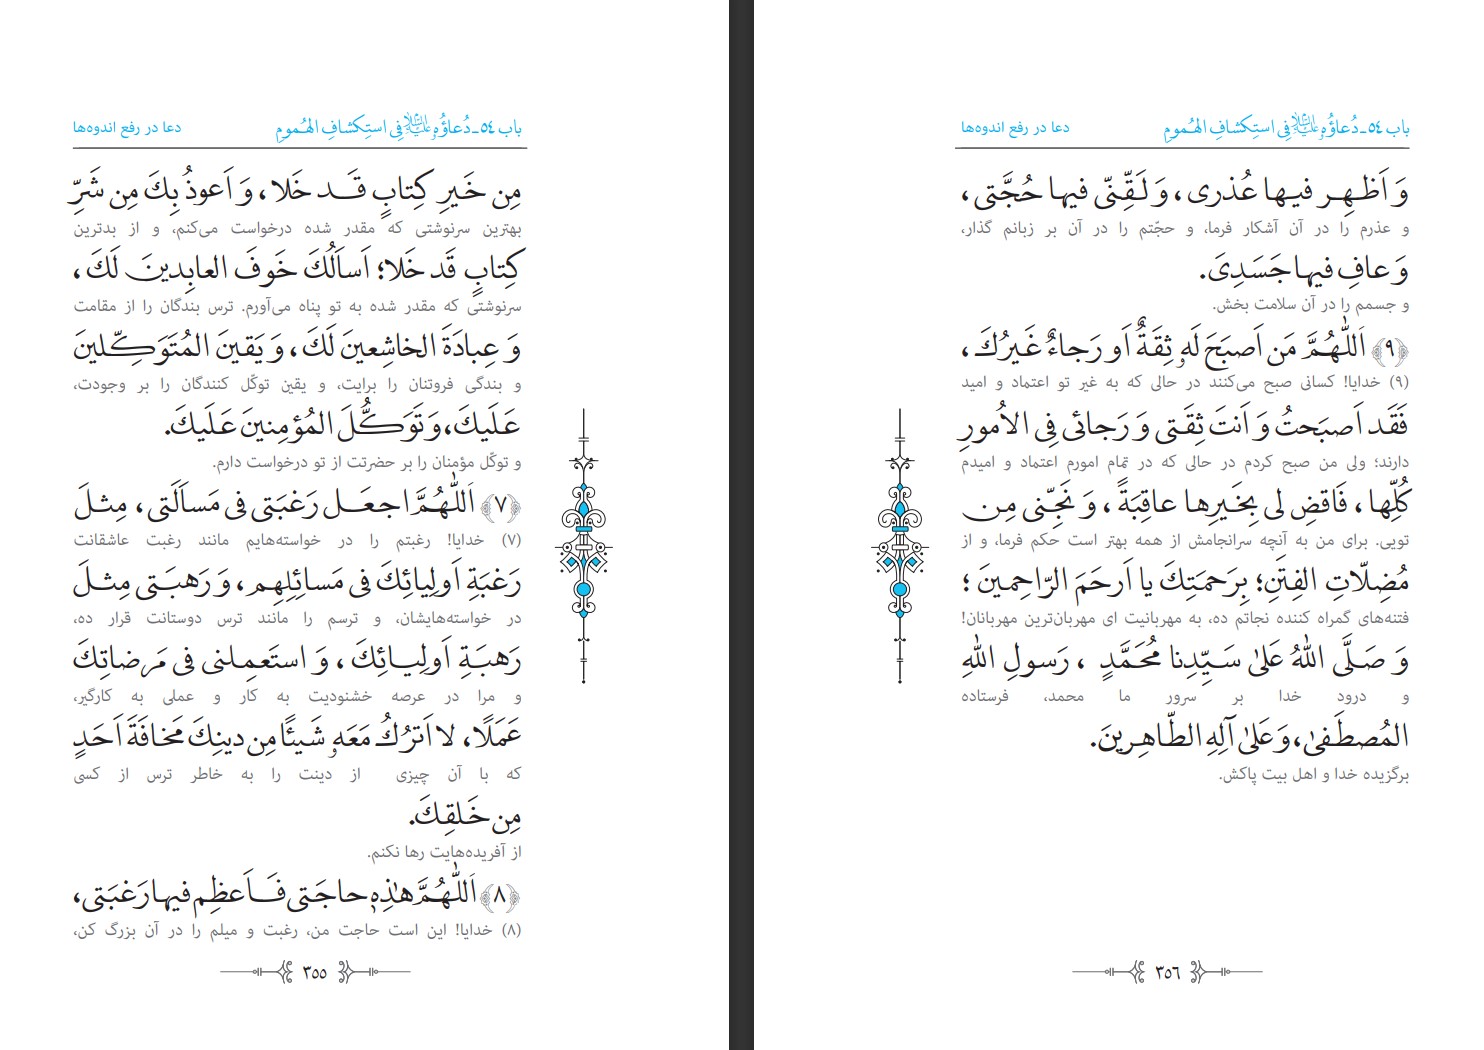 باب ٥٤ـ دُعاؤُهُ علیه‌السلام فِی استِکشافِ الهُمومِ
دعا در رفع اندوه‌ها
مِن خَیرِ کِتابٍ قَـد خَلا، وَ اَعوذُ بِكَ مِن شَرِّ
بهترین سرنوشتی که مقدر شده درخواست می‌کنم، و از بدترین
کِتابٍ قَد خَلا؛ اَساَلُكَ خَوفَ العابِدینَ لَكَ،
سرنوشتی که مقدر شده به تو پناه می‌آورم. ترس بندگان را از مقامت
وَ عِبادَةَ الخاشِعینَ لَكَ، وَ یَقینَ المُتَوَکِّلینَ
و بندگی فروتنان را برایت، و یقین توکّل کنندگان را بر وجودت،
عَلَیكَ، وَ تَوَکُّلَ المُؤمِنینَ عَلَیكَ.
و توکّل مؤمنان را بر حضرتت از تو درخواست دارم.
﴿٧﴾ اَللّٰهُمَّ اجعَـل رَغبَتی فی مَساَلَتی، مِثلَ
(٧) خدایا! رغبتم را در خواسته‌هایم مانند رغبت عاشقانت
رَغبَةِ اَولِیائِكَ فی مَسائِلِهِم، وَ رَهبَـتی مِثـلَ
در خواسته‌هایشان، و ترسم را مانند ترس دوستانت قرار ده،
رَهبَـةِ اَولِیـائِكَ، وَ استَعمِـلنی فی مَرضاتِكَ
و مرا در عرصه خشنودیت به کار و عملی به کارگیر،
عَمَلًا، لا اَترُكُ مَعَهو شَیئًا مِن دینِكَ مَخافَةَ اَحَدٍ
که با آن چیزی از دینت را به خاطر ترس از کسی
مِن خَلقِكَ.
از آفریده‌هایت رها نکنم.
﴿٨﴾ اَللّٰهُمَّ هٰذِهٖ حاجَتی فَـاَعظِم فیها رَغبَتی،
(٨) خدایا! این است حاجت من، رغبت و میلم را در آن بزرگ کن،
٣٥٥
باب ٥٤ـ دُعاؤُهُ علیه‌السلام فِی استِکشافِ الهُمومِ
دعا در رفع اندوه‌ها
وَ اَظهِـر فیـها عُذری، وَ لَقِّنّی فیها حُجَّتی،
و عذرم را در آن آشکار فرما، و حجّتم را در آن بر زبانم گذار،
وَ عافِ فیها جَسَدِیَ.
و جسمم را در آن سلامت بخش.
﴿٩﴾ اَللّٰهُمَّ مَن اَصبَحَ لَهو ثِقَةٌ اَو رَجاءٌ غَیرُكَ،
(٩) خدایا! کسانی صبح می‌کنند در حالی که به غیر تو اعتماد و امید
فَقَد اَصبَحتُ وَ اَنتَ ثِقَتی وَ رَجائی فِی الاُمورِ
دارند؛ ولی من صبح کردم در حالی که در تمام امورم اعتماد و امیدم
کُلِّها، فَاقضِ لی بِخَیرِها عاقِبَةً، وَ نَجِّنی مِن
تویی. برای من به آنچه سرانجامش از همه بهتر است حکم فرما، و از
مُضِلّاتِ الفِتَنِ؛ بِرَحمَتِكَ یا اَرحَمَ الرّاحِمینَ؛
فتنه‌های گمراه کننده نجاتم ده، به مهربانیت ای مهربان‌ترین مهربانان!
وَ صَلَّی اللهُ عَلیٰ سَیِّدِنا مُحَمَّدٍ، رَسولِ اللهِ
و درود خدا بر سرور ما محمد، فرستاده
المُصطَفیٰ، وَ عَلیٰ آلِهِ الطّاهِرینَ.
برگزیده خدا و اهل بیت پاکش.
٣٥٦